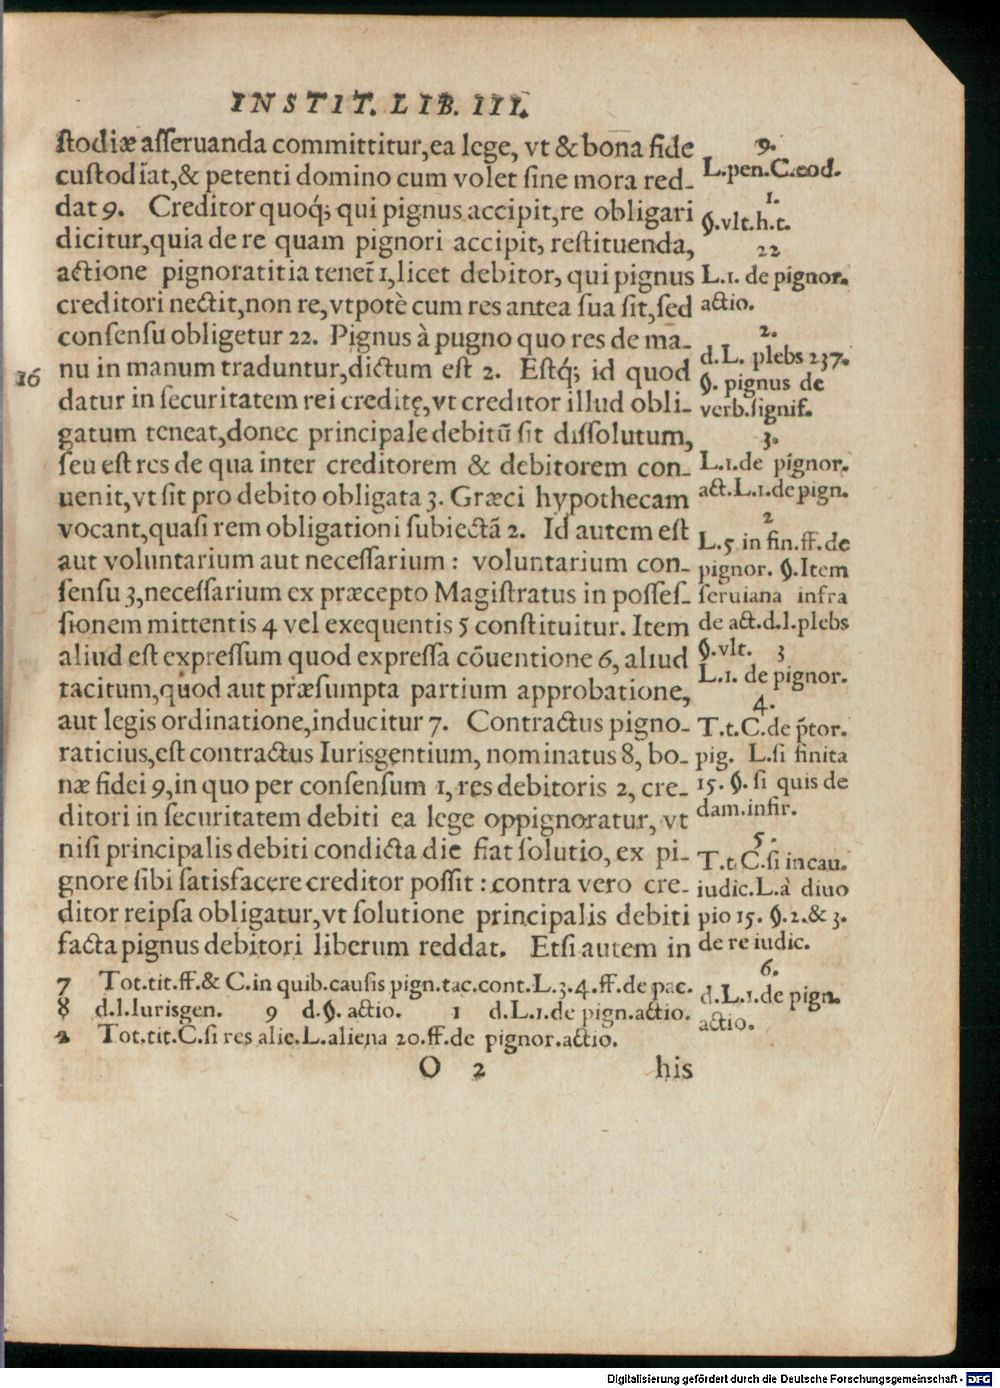 INSTIT. LIB. III.
ſtodiæ aſſeruanda committitur, ea lege, vt & bona fide
cuſtodiat, & petenti domino cum volet ſine mora red-
dat 9. Creditor quoq́; qui pignus accipit, re obligari
dicitur, quia de re quam pignori accipit, reſtituenda,
actione pignoratitia tenet̃ 1, licet debitor, qui pignus
creditori nectit, non re, vtpotè cum res antea ſua ſit, ſed
conſenſu obligetur 22. Pignus à pugno quo res de ma-
nu in manum traduntur, dictum eſt 2. Eſtq́; id quod
datur in ſecuritatem rei creditę, vt creditor illud obli-
gatum teneat, donec principale debitū ſit diſſolutum,
ſeu eſt res de qua inter creditorem & debitorem con-
uenit, vt ſit pro debito obligata 3. Græci hypothecam
vocant, quaſi rem obligationi ſubiectā 2. Id autem eſt
aut voluntarium aut neceſſarium : voluntarium con-
ſenſu 3, neceſſarium ex præcepto Magiſtratus in poſſeſ-
ſionem mittentis 4 vel exequentis 5 conſtituitur. Item
aliud eſt expreſſum quod expreſſa cōuentione 6, aliud
tacitum, quod aut præſumpta partium approbatione,
aut legis ordinatione, inducitur 7. Contractus pigno-
raticius, eſt contractus Iurisgentium, nominatus 8, bo-
næ fidei 9, in quo per conſenſum 1, res debitoris 2, cre-
ditori in ſecuritatem debiti ea lege oppignoratur, vt
niſi principalis debiti condicta die fiat ſolutio, ex pi-
gnore ſibi ſatisfacere creditor poſſit : contra vero cre-
ditor reipſa obligatur, vt ſolutione principalis debiti
facta pignus debitori liberum reddat. Etſi autem in
16
9.
L.pen.C.eod.
1.
§.vlt.h.t.
22
L.1. de pignor.
actio.
2.
d.L. plebs 237.
§. pignus de
verb.ſignif.
3.
L.1.de pignor.
act.L.1.de pign.
2
L.5 in fin.ff.de
pignor. §.Item
ſeruiana infra
de act.d.l.plebs
§.vlt. 3
L.1. de pignor.
4.
T.t.C.de p̃tor.
pig. L.ſi finita
15. §. ſi quis de
dam.infir.
5.
T.t C.ſi in cau.
iudic.L.à diuo
pio 15. §.2.& 3.
de re iudic.
6.
d.L.1.de pign.
actio.
7 Tot.tit.ff.& C.in quib.cauſis pign.tac.cont.L.3.4.ff.de pac.
8 d.l.Iurisgen. 9 d.§. actio. 1 d.L.1.de pign.actio.
2 Tot.tit.C.ſi res alie.L.aliena 20.ff.de pignor.actio.
O 2 his
Digitalisierung gefördert durch die Deutsche Forschungsgemeinschaft - DFG